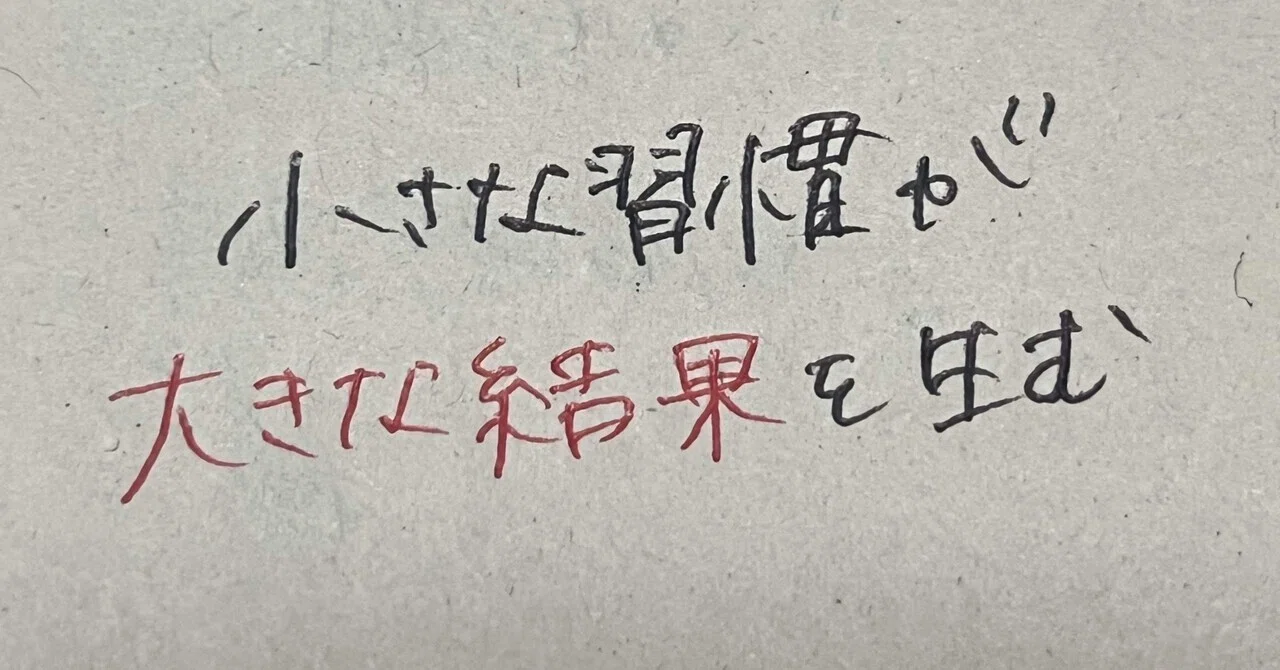 小さな習慣が
大きな結果を生む